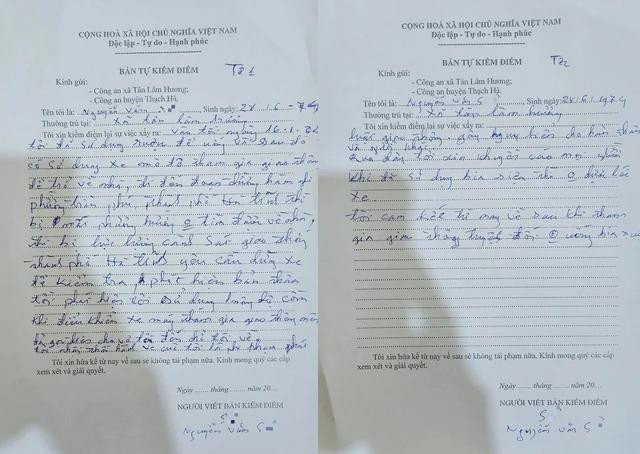 CỘNG HOÀ XÃ HỘI CHỦ NGHĨA VIỆT NAM
Độc lập - Tự do - Hạnh phúc
BẢN TỰ KIỂM ĐIỂM Tờ 1
Kính gửi:
- Công an xã Tân Lâm Hương;
- Công an huyện Thạch Hà.
Tên tôi là: Nguyễn Văn S Sinh ngày:
Thường trú tại: Xã tân lâm hương
Tôi xin kiểm điểm lại sự việc xảy ra: Vào tối ngày 16-1-
tôi đã sử dụng rượu để uống và sau đó
có sử dụng xe mô tô tham gia giao thông
để trở về nhà, đi đến đoạn đường hàm nghi
phường trần phú, thành phố Hà tĩnh thì
bị mất phương hướng tìm đường về nhà,
thì bị lực lượng cảnh sát giao thông
thành phố Hà tĩnh yêu cầu dừng xe
để kiểm tra, phát hiện bản thân
tôi sử dụng nồng độ cồn
khi điều khiển xe máy tham gia giao thông
tôi
Tôi xin hứa kể từ nay về sau sẽ không tái phạm nữa. Kính mong quý các cấp
xem xét và giải quyết.
Ngày ....... tháng ........ năm 20....
NGƯỜI VIẾT BẢN KIỂM ĐIỂM
S
Nguyễn Văn S
CỘNG HOÀ XÃ HỘI CHỦ NGHĨA VIỆT NAM
Độc lập - Tự do - Hạnh phúc
BẢN TỰ KIỂM ĐIỂM Tờ 2
Kính gửi:
- Công an xã Tân Lâm Hương;
- Công an huyện Thạch Hà.
Tên tôi là: Nguyễn Văn S Sinh ngày:
Thường trú tại: Xã tân lâm hương
Tôi xin kiểm điểm lại sự việc xảy ra:
luật giao thông, gây nguy hiểm cho bản thân
và người khác.
Qua đây tôi xin khuyên vào mọi người
khi đã sử dụng bia rượu thì o điều
xe
tôi cam kết từ nay về sau khi tham
gia giao thông tuyệt đối o uống bia rượu
Tôi xin hứa kể từ nay về sau sẽ không tái phạm nữa. Kính mong quý các cấp
xem xét và giải quyết.
Ngày ....... tháng ........ năm 20....
NGƯỜI VIẾT BẢN KIỂM ĐIỂM
S
Nguyễn Văn S